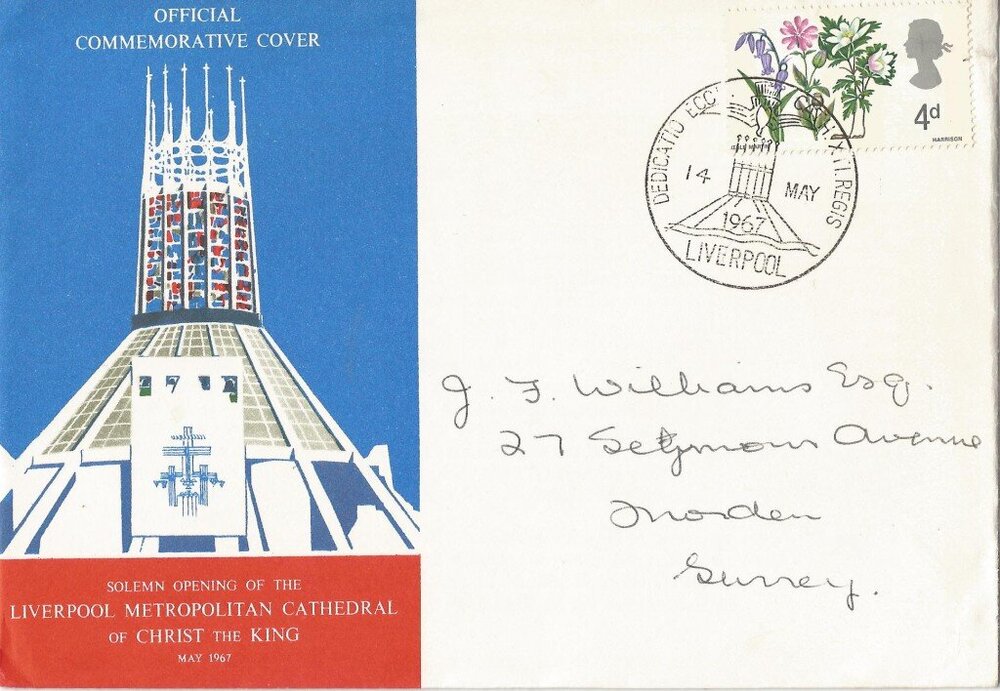 OFFICIAL
COMMEMORATIVE COVER
SOLEMN OPENING OF THE
LIVERPOOL METROPOLITAN CATHEDRAL
OF CHRIST THE KING
MAY 1967
4d
HARRISON
DEDICATIO ECC REGIS
14 MAY
1967
LIVERPOOL
J. F. Williams Esq.
27 Seymour Avenue
Morden
Surrey.